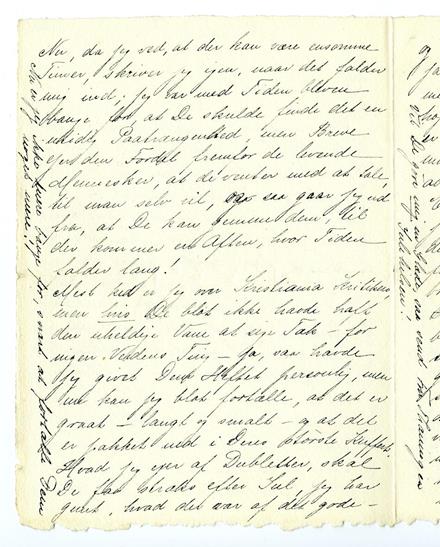 Nu, da jeg ved, at der kan være ensomme
Timer, skriver jeg igen, naar det falder
mig ind; jeg var med Tiden bleven
bange for at De skulde finde det en
Paatrængenhed, men Breve
Fordel fremfor de levende
Mennesker, at de venter med at tale,
til man selv vil, saa gaar jeg ud
fra, at De kan gemme dem, til
der kommer en Aften, hvor Tiden
falder lang!
Mest ked er jeg over Kristiania
men hvis De blot ikke havde haft
den uheldige Vane at sige Tak – for
ingen Verdens Ting – ja, saa havde
jeg givet Dem Hæftet personlig, men
nu kan jeg blot fortælle, at det er
graat – langt og smalt – og at det
er pakket ned i Deres største Kuffert.
Hvad jeg ejer af Dubletter, skal
De faa straks efter Jul, jeg har
glemt, hvad det var af det gode –
Nu er jeg ikke mere bange for, snart at fortælle Dem
noget mere!
vil De gøre mig en Glæde, saa send
Julehilsen!